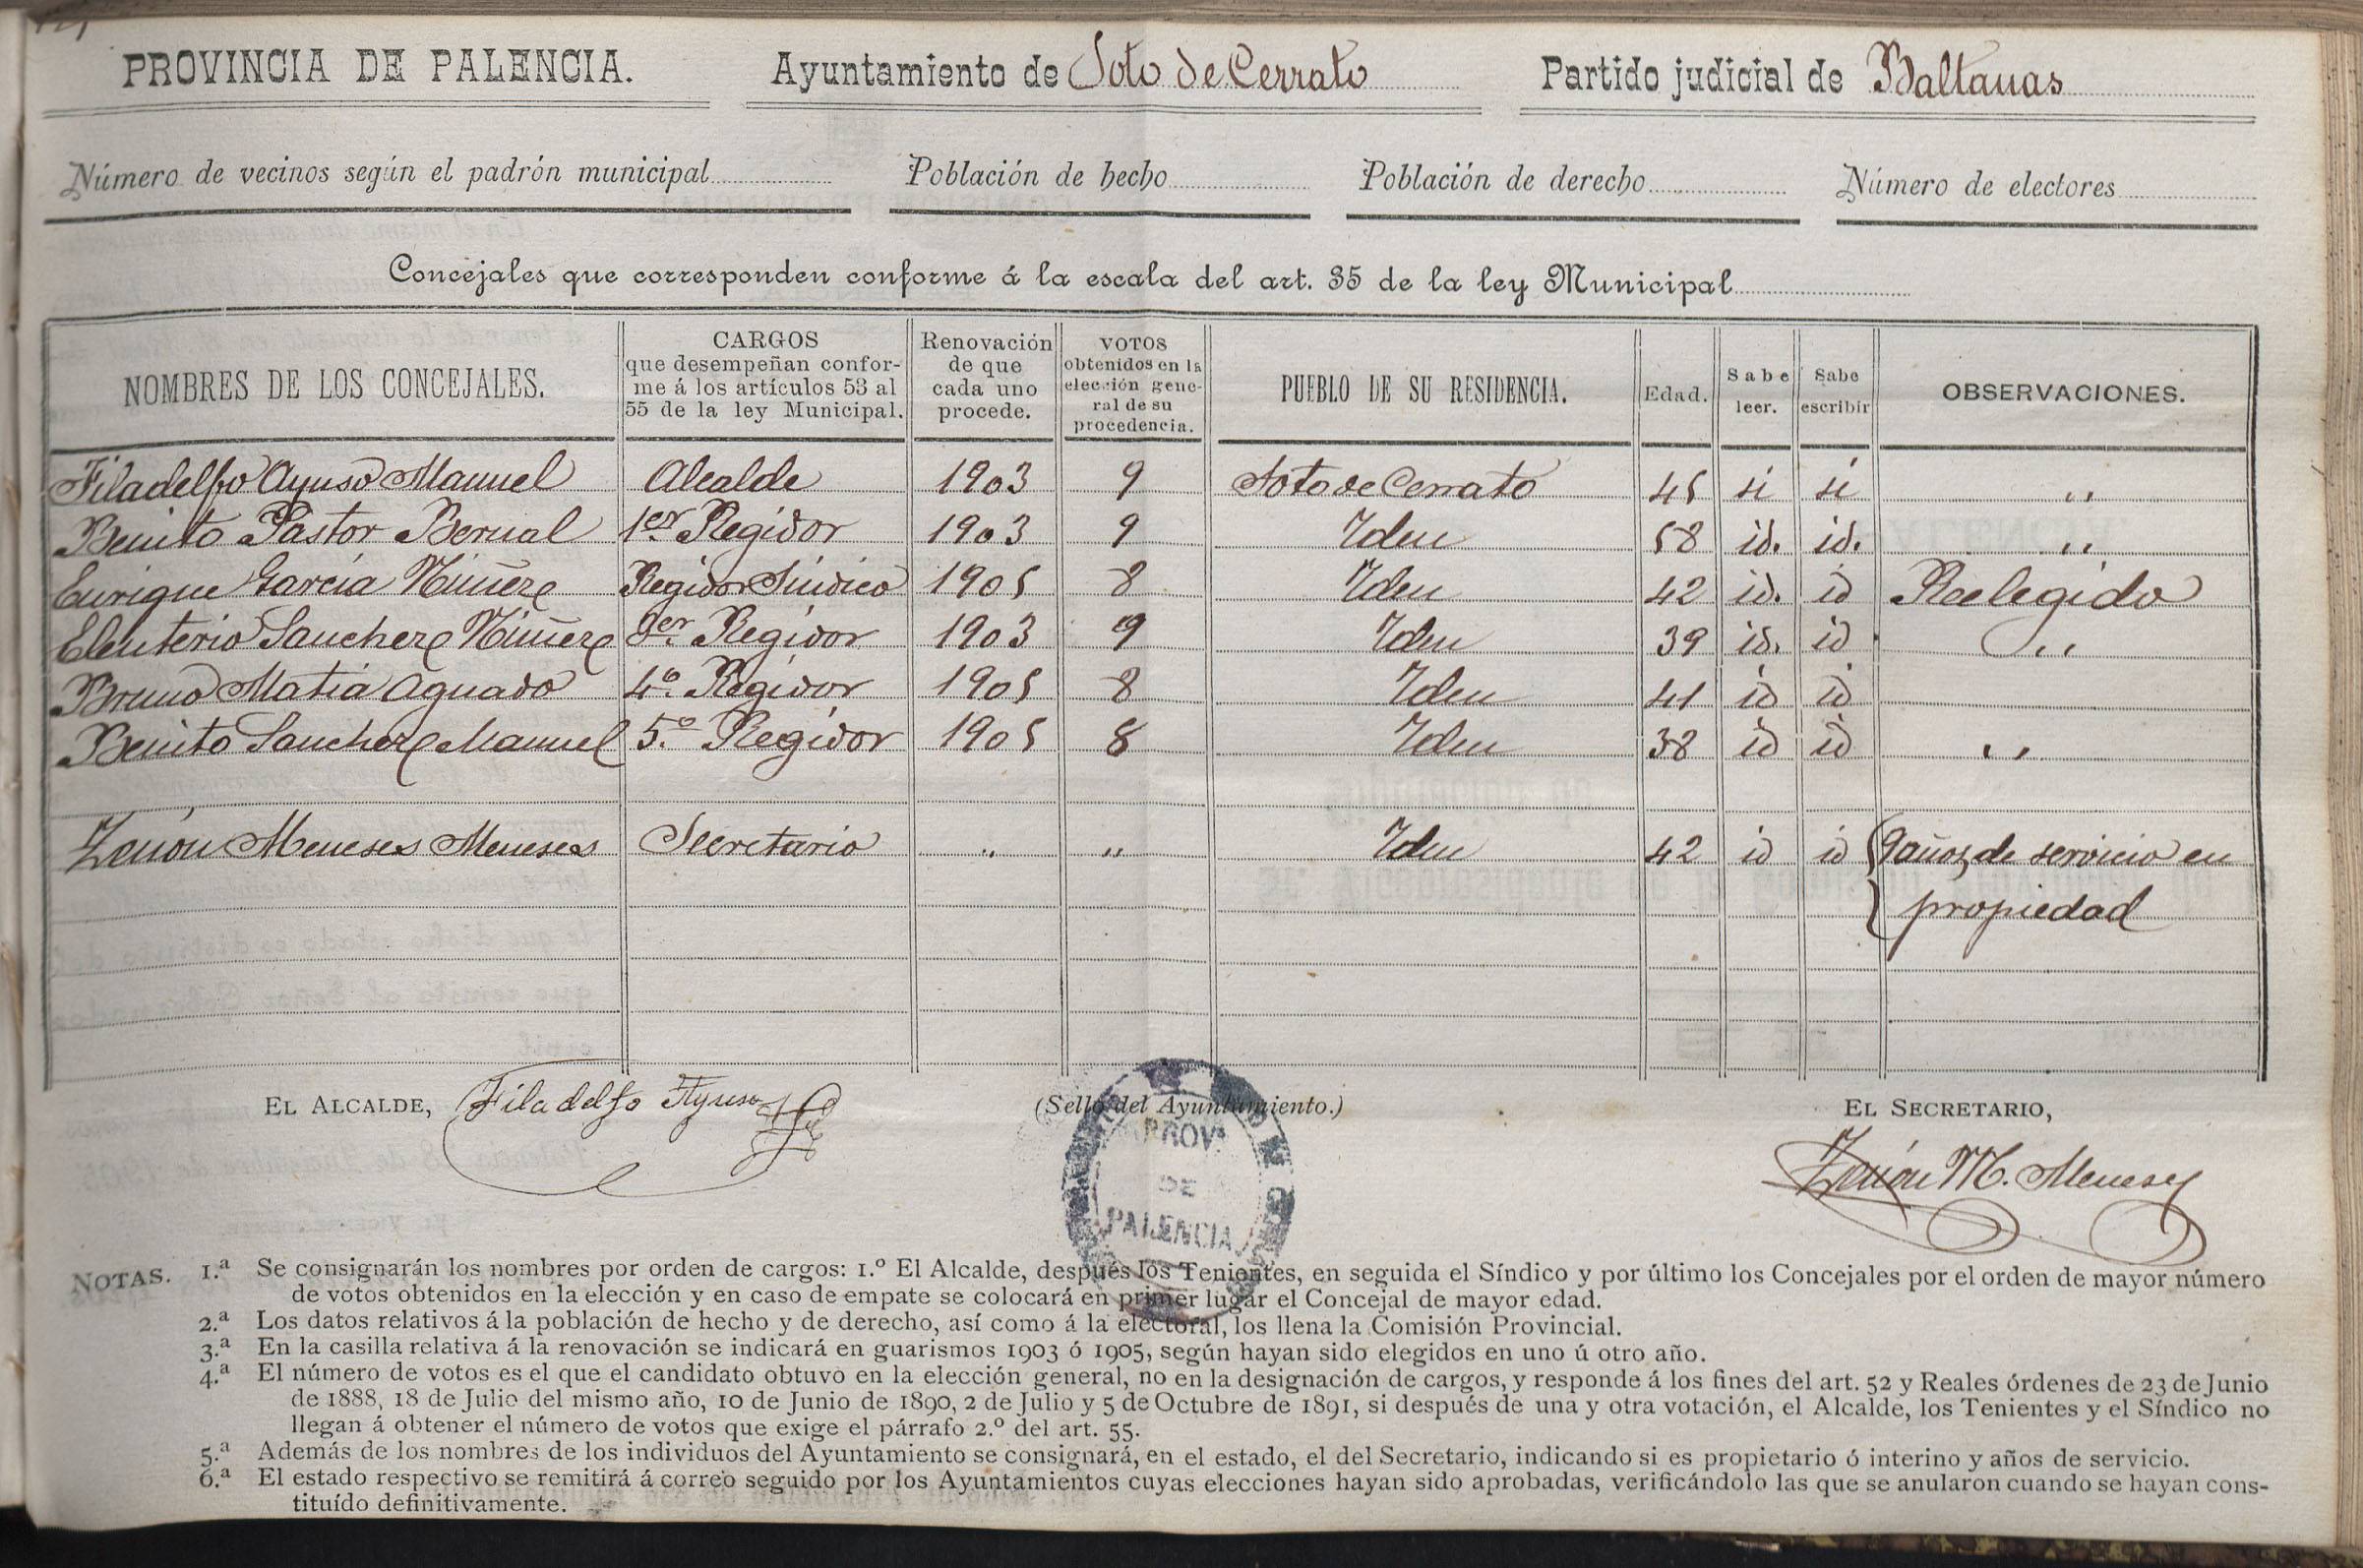 PROVINCIA DE PALENCIA. Ayuntamiento de Soto de Cerrato Partido judicial de Baltanas
Número de vecinos según el padrón municipal Población de hecho Población de derecho Número de electores
Concejales que corresponden conforme á la escala del art. 35 de la ley Municipal
NOMBRES DE LOS CONCEJALES. CARGOS que desempeñan confor- me á los artículos 53 al 55 de la ley Municipal. Renovación de que cada uno procede. VOTOS obtenidos en la elección gene- ral de su procedencia. PUEBLO DE SU RESIDENCIA. Edad. Sabe leer. Sabe escribir OBSERVACIONES.
Filadelfo Ayuso Manuel Alcalde 1903 9 Soto de Cerrato 45 si si "
Benito Pastor Bernal 1er Regidor 1903 9 Iden 58 id. id. "
Enrique Garcia Niñere Regidor Sindico 1905 8 Iden 42 id. id Reelegido
Eleuterio Sanchere Niñere 3er Regidor 1903 9 Iden 39 id. id "
Bruno Matia Aguado 4º Regidor 1905 8 Iden 41 id id
Benito Sanchere Manuel 5.º Regidor 1905 8 Iden 38 id id "
Zenón Meneses Meneses Secretario " " Iden 42 id id 9 años de servicio en
propiedad
EL ALCALDE, Filadelfo Ayuso (Sello del Ayuntamiento.) EL SECRETARIO,
PROVª
DE
PALENCIA
Zenón M. Meneses
NOTAS. 1.ª Se consignarán los nombres por orden de cargos: 1.º El Alcalde, después los Tenientes, en seguida el Síndico y por último los Concejales por el orden de mayor número
de votos obtenidos en la elección y en caso de empate se colocará en primer lugar el Concejal de mayor edad.
2.ª Los datos relativos á la población de hecho y de derecho, así como á la electoral, los llena la Comisión Provincial.
3.ª En la casilla relativa á la renovación se indicará en guarismos 1903 ó 1905, según hayan sido elegidos en uno ú otro año.
4.ª El número de votos es el que el candidato obtuvo en la elección general, no en la designación de cargos, y responde á los fines del art. 52 y Reales órdenes de 23 de Junio
de 1888, 18 de Julio del mismo año, 10 de Junio de 1890, 2 de Julio y 5 de Octubre de 1891, si después de una y otra votación, el Alcalde, los Tenientes y el Síndico no
llegan á obtener el número de votos que exige el párrafo 2.º del art. 55.
5.ª Además de los nombres de los individuos del Ayuntamiento se consignará, en el estado, el del Secretario, indicando si es propietario ó interino y años de servicio.
6.ª El estado respectivo se remitirá á correo seguido por los Ayuntamientos cuyas elecciones hayan sido aprobadas, verificándolo las que se anularon cuando se hayan cons-
tituído definitivamente.